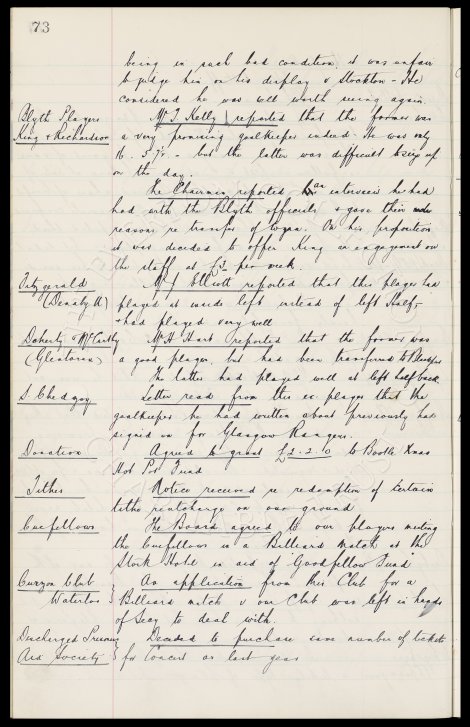 73
being in such bad condition, it was unfair
to judge him on his display v Stockton. He
considered he was well worth seeing again.
Blyth Players Mr T Kelly reported that the former was
King & Richardson a very promising goalkeeper indeed. He was only
16. but the latter was difficult to size up
on the day.
The Chairman reported an interview he had
had with the Blyth officials & gave their
reasons re transfer of On his proposition
it was decided to offer King an engagement on
the staff at per week.
Fitzgerald Mr J Elliott reported that this player had
(Denaby U) played at inside left instead of left half,
& had played very well
Doherty & McCarthy Mr H Hart reported that the former was
(Glentoran) a good player, but had been transferred to
The latter had played well at left half back.
S. Chedgzoy Letter read from this ex-player that the
goalkeeper he had written about previously had
signed on for Glasgow Rangers.
Donation Agreed to grant £2-2-0 to Bootle Xmas
Hot Pot Fund
Tithes Notice received re redemption of certain
tithe rentcharge on our ground
Cuefellows The Board agreed to our players meeting
the Cuefellows in a Billiard match at the
Stork Hotel in aid of Goodfellow Fund
Curzon Club An application from this Club for a
Waterloo Billiard match v our Club was left in hands
of Secy to deal with.
Discharged Prisoners Decided to purchase same number of tickets
Aid Society for Concert as last year